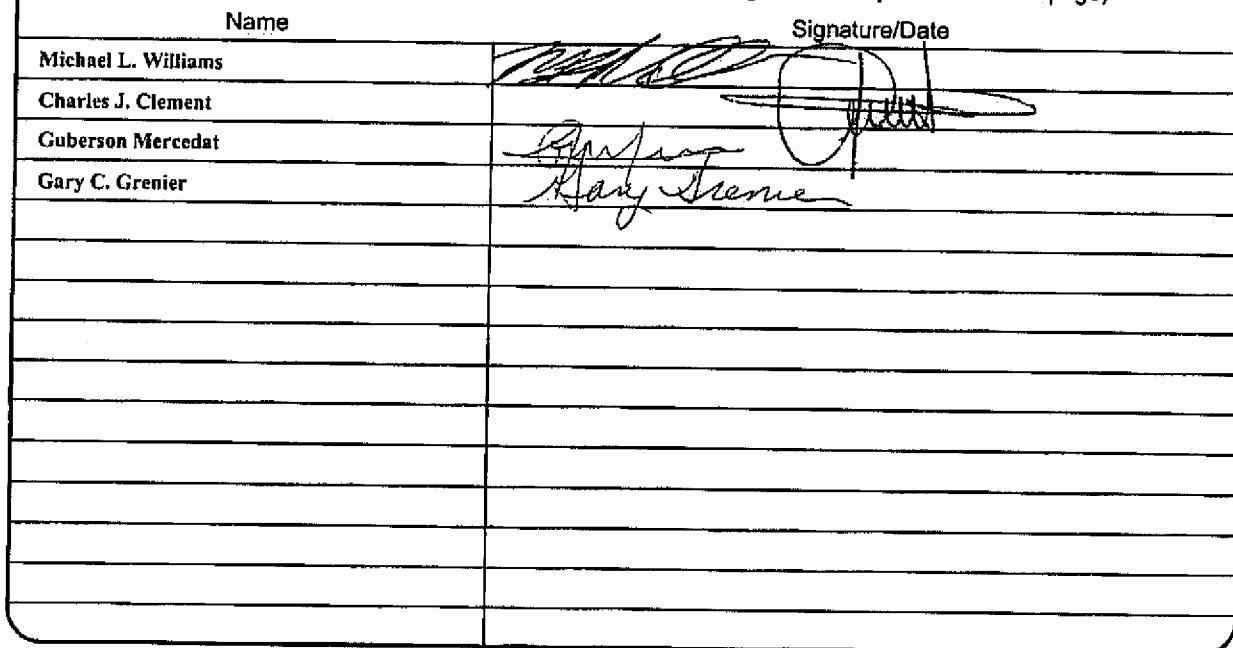 page)
Name Signature/Date
Michael L. Williams
Charles J. Clement
Guberson Mercedat
Gary C. Grenier Gary Grenier